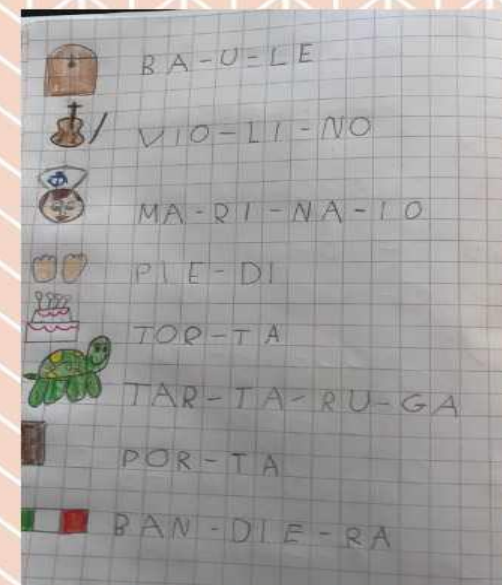 BA-U-LE
VIO-LI-NO
MA-RI-NA-IO
PIE-DI
TOR-TA
TAR-TA-RU-GA
POR-TA
BAN-DIE-RA